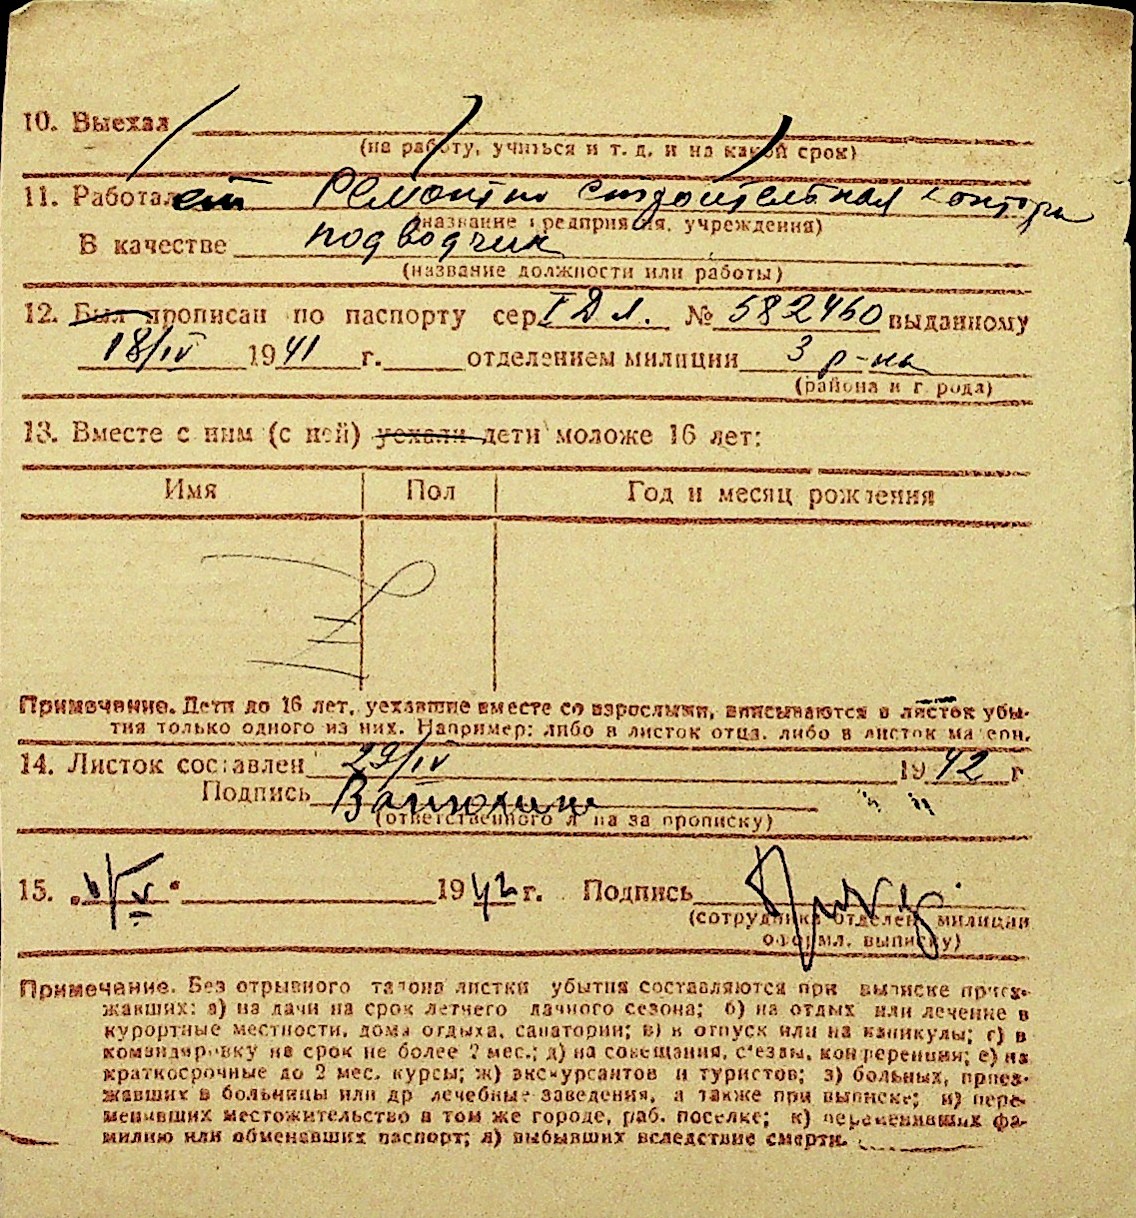 10. Выехал
(на работу, учиться и т. д. и на какой срок)
11. Работает Ремонтно строительная контора
(название предприятия, учреждения)
В качестве подводчик
(название должности или работы)
12. Был прописан по паспорту сер. I Д Л. № 582460 выданному
18/IV 1941 г. отделением милиции 3 р-на
(района и города)
13. Вместе с ним (с ней) уехали дети моложе 16 лет:
Имя Пол Год и месяц рождения
Примечание. Дети до 16 лет, уехавшие вместе со взрослыми, вписываются в листок убы-
тия только одного из них. Например: либо в листок отца, либо в листок матери.
14. Листок составлен 29/IV 1942 г
Подпись
(ответственного лица за прописку)
15. „1/V" 1942 г. Подпись
(сотрудника отделен. милиции
оформл. выписку)
Примечание. Без отрывного талона листки убытия составляются при выписке приез-
жавших: а) на дачи на срок летнего дачного сезона; б) на отдых или лечение в
курортные местности, дома отдыха, санатории; в) в отпуск или на каникулы; г) в
командировку на срок не более 2 мес.; д) на совещания, съезды, конференции; е) на
краткосрочные до 2 мес. курсы; ж) экскурсантов и туристов; з) больных, приез-
жавших в больницы или др лечебные заведения, а также при выписке; и) пере-
менивших местожительство в том же городе, раб. поселке; к) переменивших фа-
милию или обменявших паспорт; л) выбывших вследствие смерти.